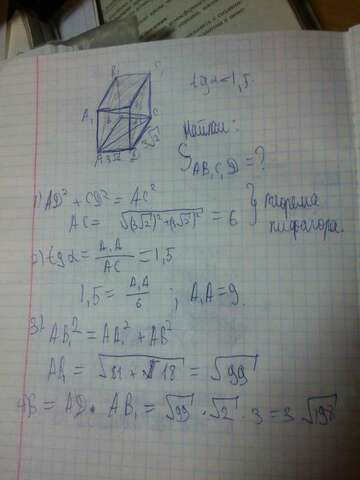 B₁ C₁
A₁
C
A 3√2 D 3√2
tgα=1,5
Найти:
S AB₁C₁D = ?
1) AD² + CD² = AC²
AC = √(3√2)²+(3√2)² = 6 } теорема пифагора.
2) tgα = A₁A/AC = 1,5
1,5 = A₁A/6 ; A₁A = 9.
3) AB₁² = AA₁² + AB²
AB₁ = √81 + 18 = √99
= AD · AB₁ = √99 · √2 · 3 = 3√198